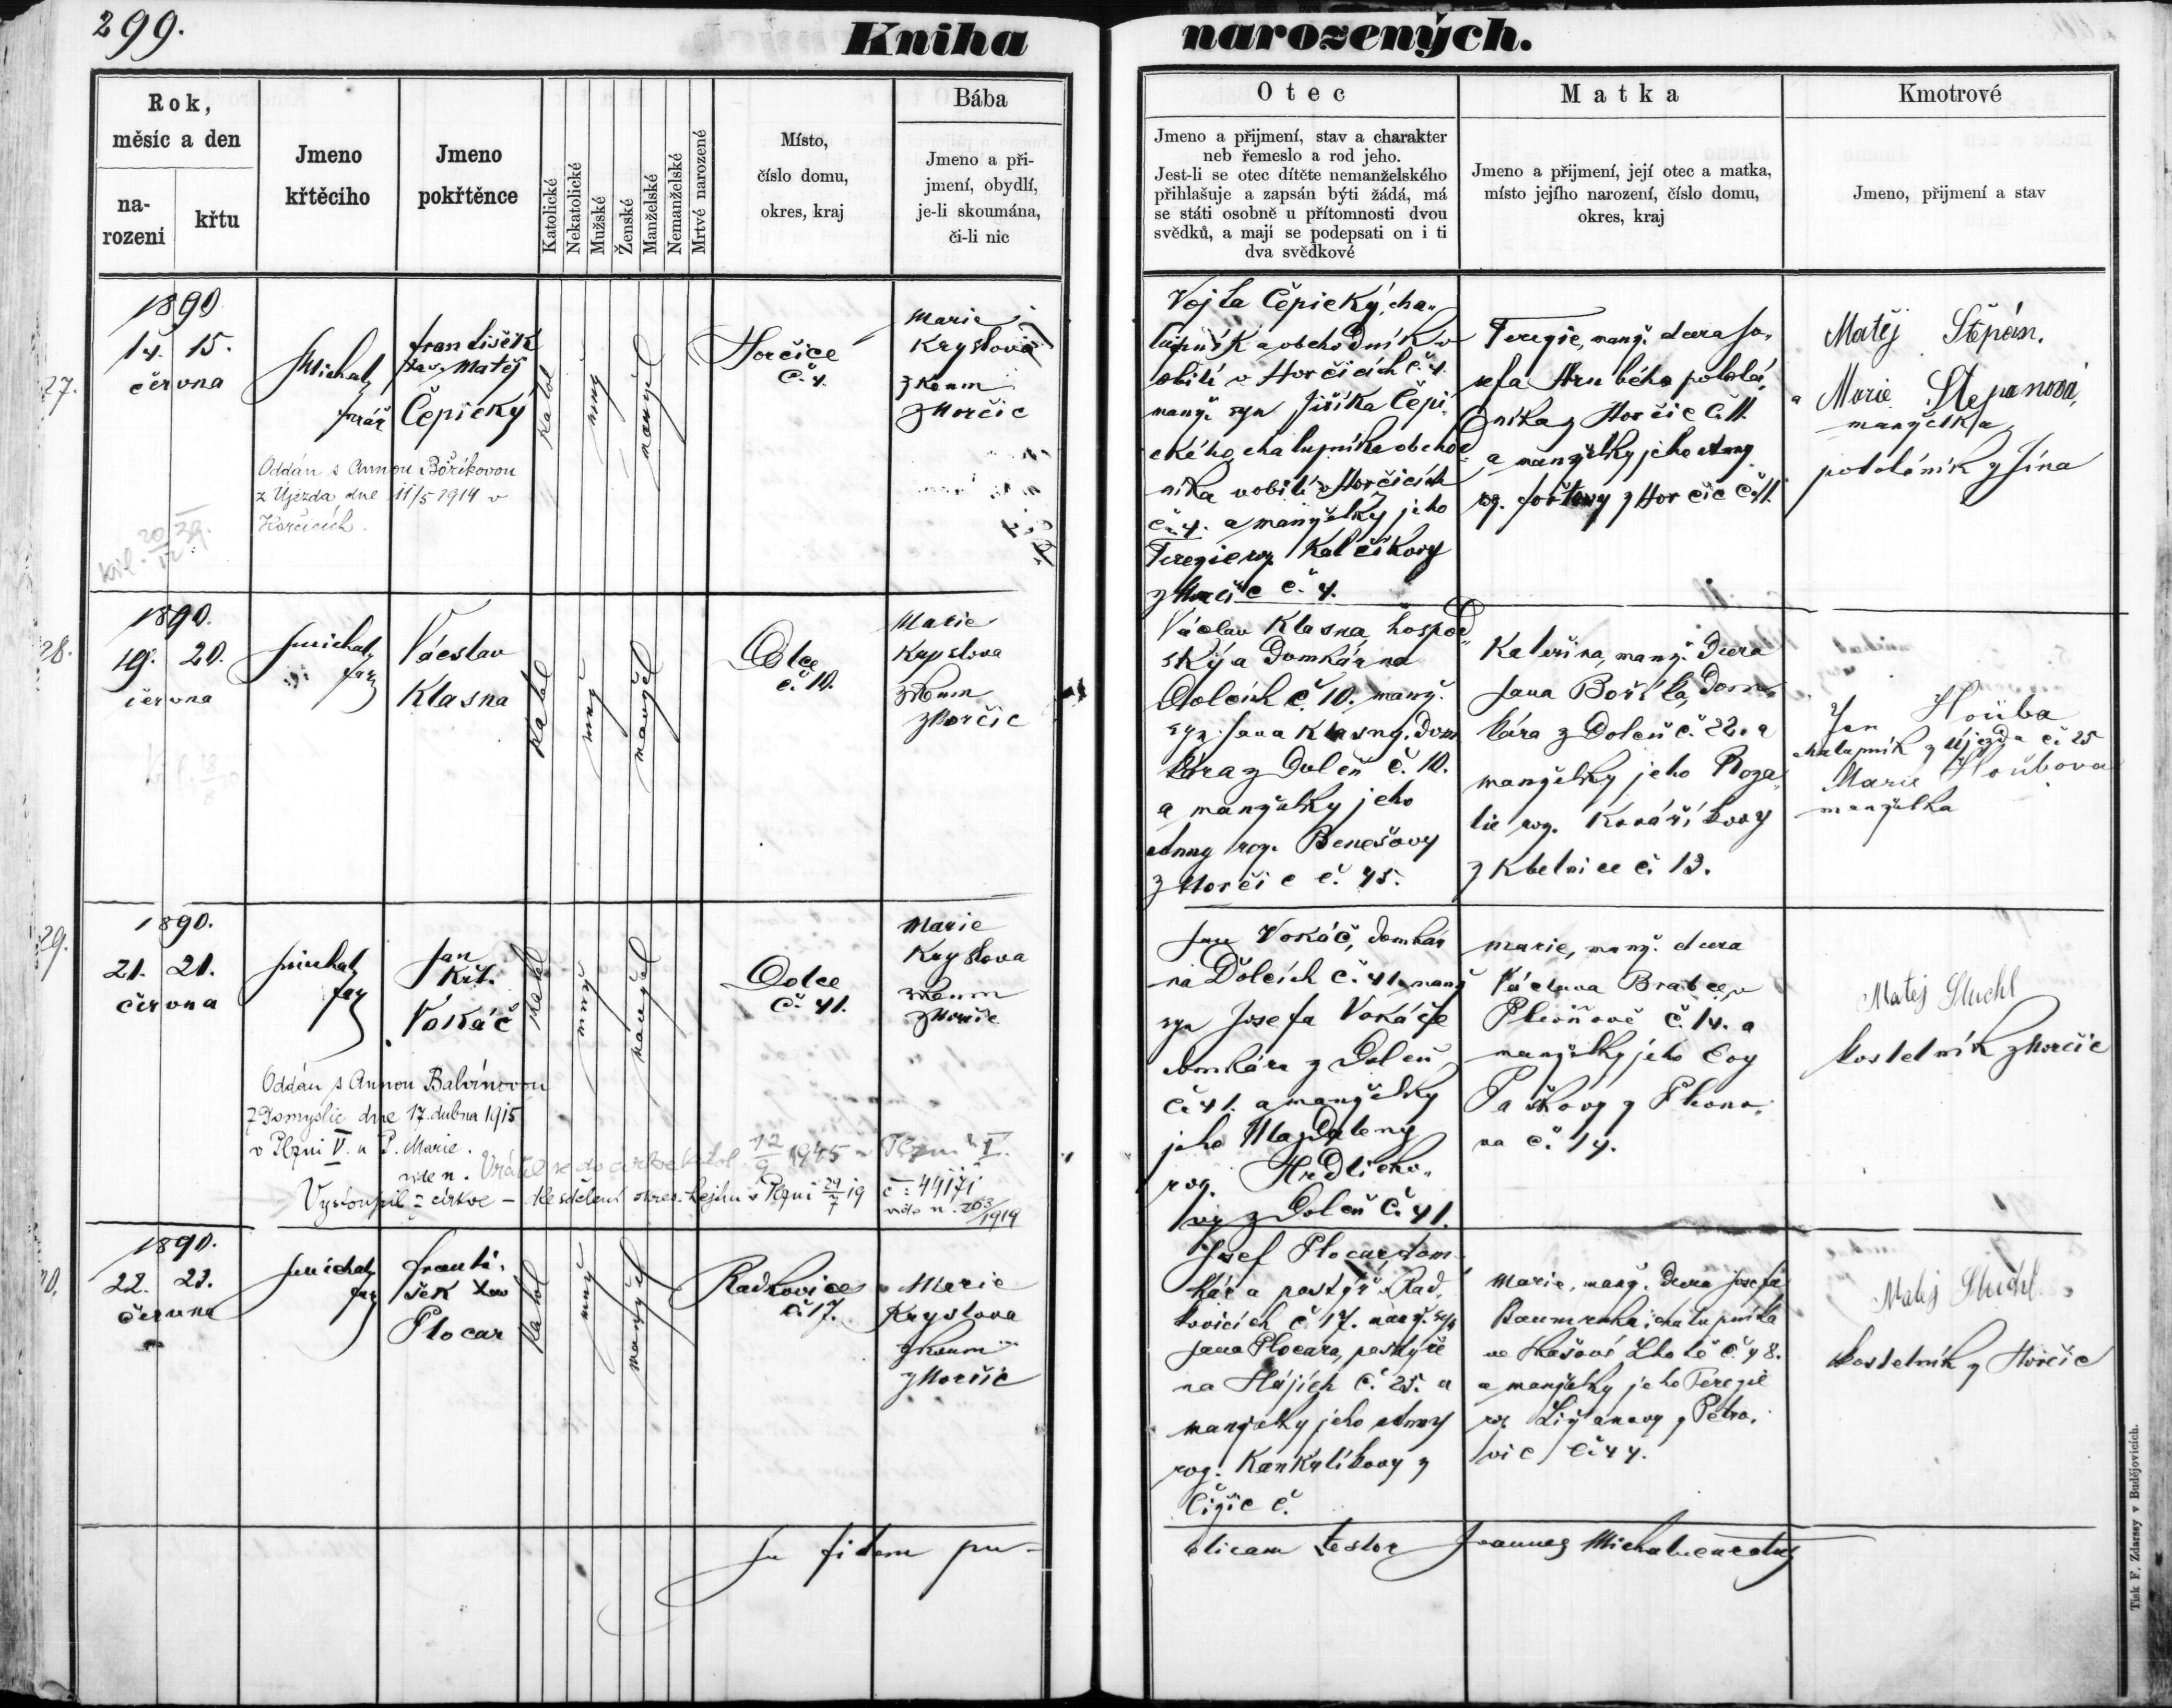 299.
Kniha narozených.
Rok,
měsíc a den
na-
rození
křtu
Jmeno
křtěcího
Jmeno
pokřtěnce
Katolické
Nekatolické
Mužské
Ženské
Manželské
Nemanželské
Mrtvé narozené
Místo,
číslo domu,
okres, kraj
Bába
Jmeno a při-
jmení, obydlí,
je-li skoumána,
či-li nic
Otec
Jmeno a přijmení, stav a charakter
neb řemeslo a rod jeho.
Jest-li se otec dítěte nemanželského
přihlašuje a zapsán býti žádá, má
se státi osobně u přítomnosti dvou
svědků, a mají se podepsati on i ti
dva svědkové
Matka
Jmeno a přijmení, její otec a matka,
místo jejího narození, číslo domu,
okres, kraj
Kmotrové
Jmeno, přijmení a stav
27.
1890
14. 15.
června
Michal
farář
František
Matěj
Čepický
katol
muž
manžel
Horčice
č. 4.
Marie
Kryslova
zkoum
z Horčic
Oddán s Annou Boříkovou
z Újezda dne 11/5 1914 v
Horčicích.
Vojta Čepický, cha-
lupník a obchodník v
obilí v Horčicích č. 4.
manž. syn Jiříka Čepi-
ckého, chalupníka obchod-
níka v obilí v Horčicích
č. 4. a manželky jeho
Terezie roz. Kalčíkovy
z Horčic č. 4.
Terezie, manž. dcera Jo-
sefa Hrubého podolá-
níka z Horčic č. 11.
a manželky jeho Anny
roz. Foštovy z Horčic č. 11.
Matěj Štěpán,
a Marie Štěpanová,
manželka,
podoláník z Jína
28.
1890.
19. 20.
června
Michal
far
Václav
Klasna
katol
muž
manžel
Dolce
č. 10.
Marie
Kryslova
zkoum
z Horčic
Václav Klasna, hospod-
ský a domkář na
Dolcích č. 10. manž.
syn Jana Klasny, dom
káře z Dolců č. 10.
a manželky jeho
Anny roz. Benešovy
z Horčic č. 45.
Kateřina, manž. dcera
Jana Boříka, dom-
káře z Dolců č. 22. a
manželky jeho Roza-
lie roz. Kovaříkovy
z Kbelnice č. 13.
Jan Houba
chalupník z Újezda č. 25
Marie Houbova
manželka
29.
1890.
21. 21.
června
Michal
far
Jan
Křt.
Vokáč
katol
muž
manžel
Dolce
č. 41.
Marie
Kryslova
zkoum
z Horčic
Oddán s Annou Balvínovou
z Domyslic dne 17. dubna 1915
v Plzni V. u P. Marie.
vide n. Vrátil se do církve katol. 12/9 1945 v Plzni I.
Vystoupil z církve – dle sdělení okres. hejtm. v Plzni 24/7 19 č: 44171
vide n. 203/1919
Jan Vokáč, domkář
na Dolcích č. 41. manž
syn Josefa Vokáče
domkáře z Dolců
č. 41. a manželky
jeho Magdaleny
roz. Hrdličko-
vy z Dolců č. 41.
Marie, manž. dcera
Václava Brabce v
č. 14. a
manželky jeho Evy
Paškovy z
č. 14.
Matěj Sluchl
kostelník z Horčic
30.
1890.
22. 23.
června
Michal
far
Franti-
šek Xav
Plocar
katol
muž
manžel
Radkovice
č. 17.
Marie
Kryslova
zkoum
z Horčic
Josef Plocar, dom-
kář a pastýř v Rad-
kovicích č. 17. manž. syn
Jana Plocara, pastýře
na Hájích č. 25. a
manželky jeho Anny
roz. Kankrlíkovy z
Čížic č.
Marie, manž. dcera Josefa
Baumruka, chalupníka
ve Lhotě č. 48.
a manželky jeho Terezie
roz. z Petro-
vic č. 44.
Matěj Sluchl
kostelník z Horčic
In fidem pu-
blicam testor Joannes Michal curatus
Tisk F. Zdarssy v Budějovicích.